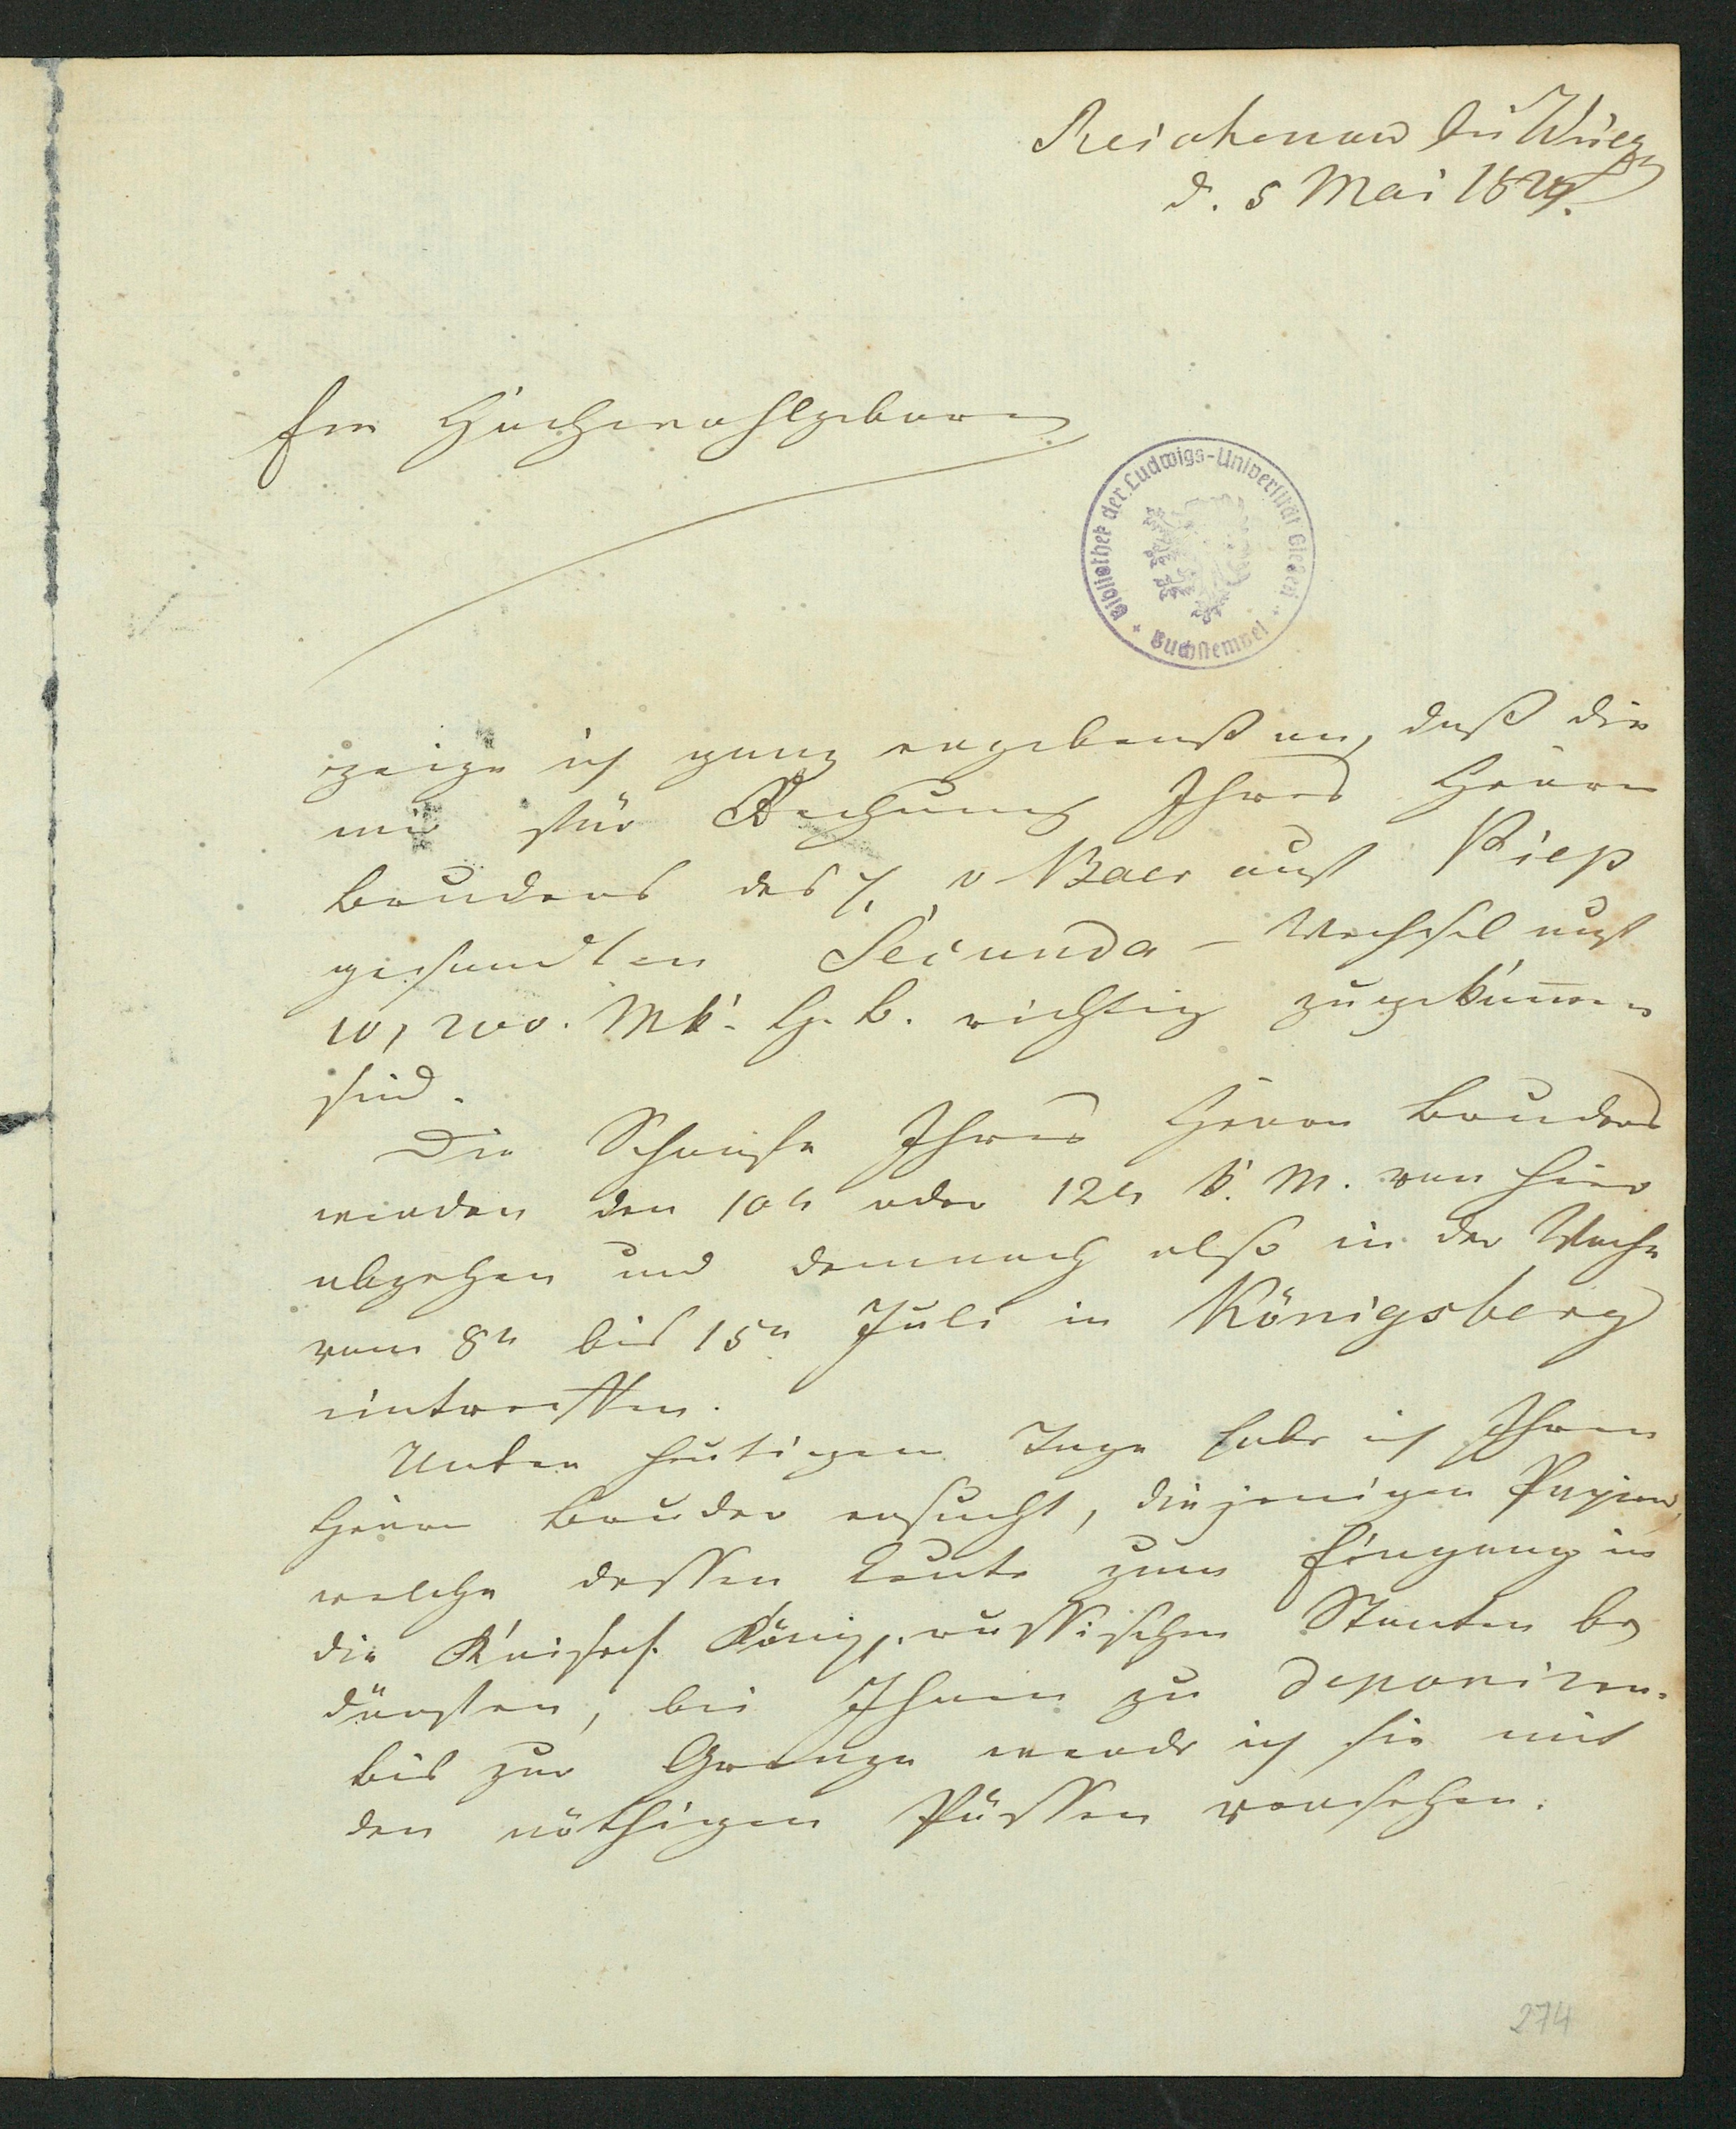 Reichenow bei Wriezen
d. 5 Mai 1829.
Ew Hochwohlgeboren
Bibliothek der Ludwigs-Universität Gießen
Buchstempel
zeige ich ganz ergebenst an, daß die
mir für Rechnung Ihres Herrn
Bruders des H. v Baer auf Piep
gesandten Secunda - Wechsel auf
10,200. Mk. H. B. richtig zugekommen
sind.
Die Schaafe Ihres Herrn Bruders
werden den 10n oder 12n k. M. von hier
abgehen und demnach also in der Woche
vom 8n bis 15n Juli in Königsberg
eintreffen.
Unter heutigem Tage habe ich Ihren
Herrn Bruder ersucht, diejenigen Papiere
welche dessen Leute zum Eingang in
die Kaiserl. König. russischen Staaten be
dürfen, bei Ihnen zu deponiren.
bis zur Grenze werde ich sie mit
den nöthigen Pässen versehen.
274